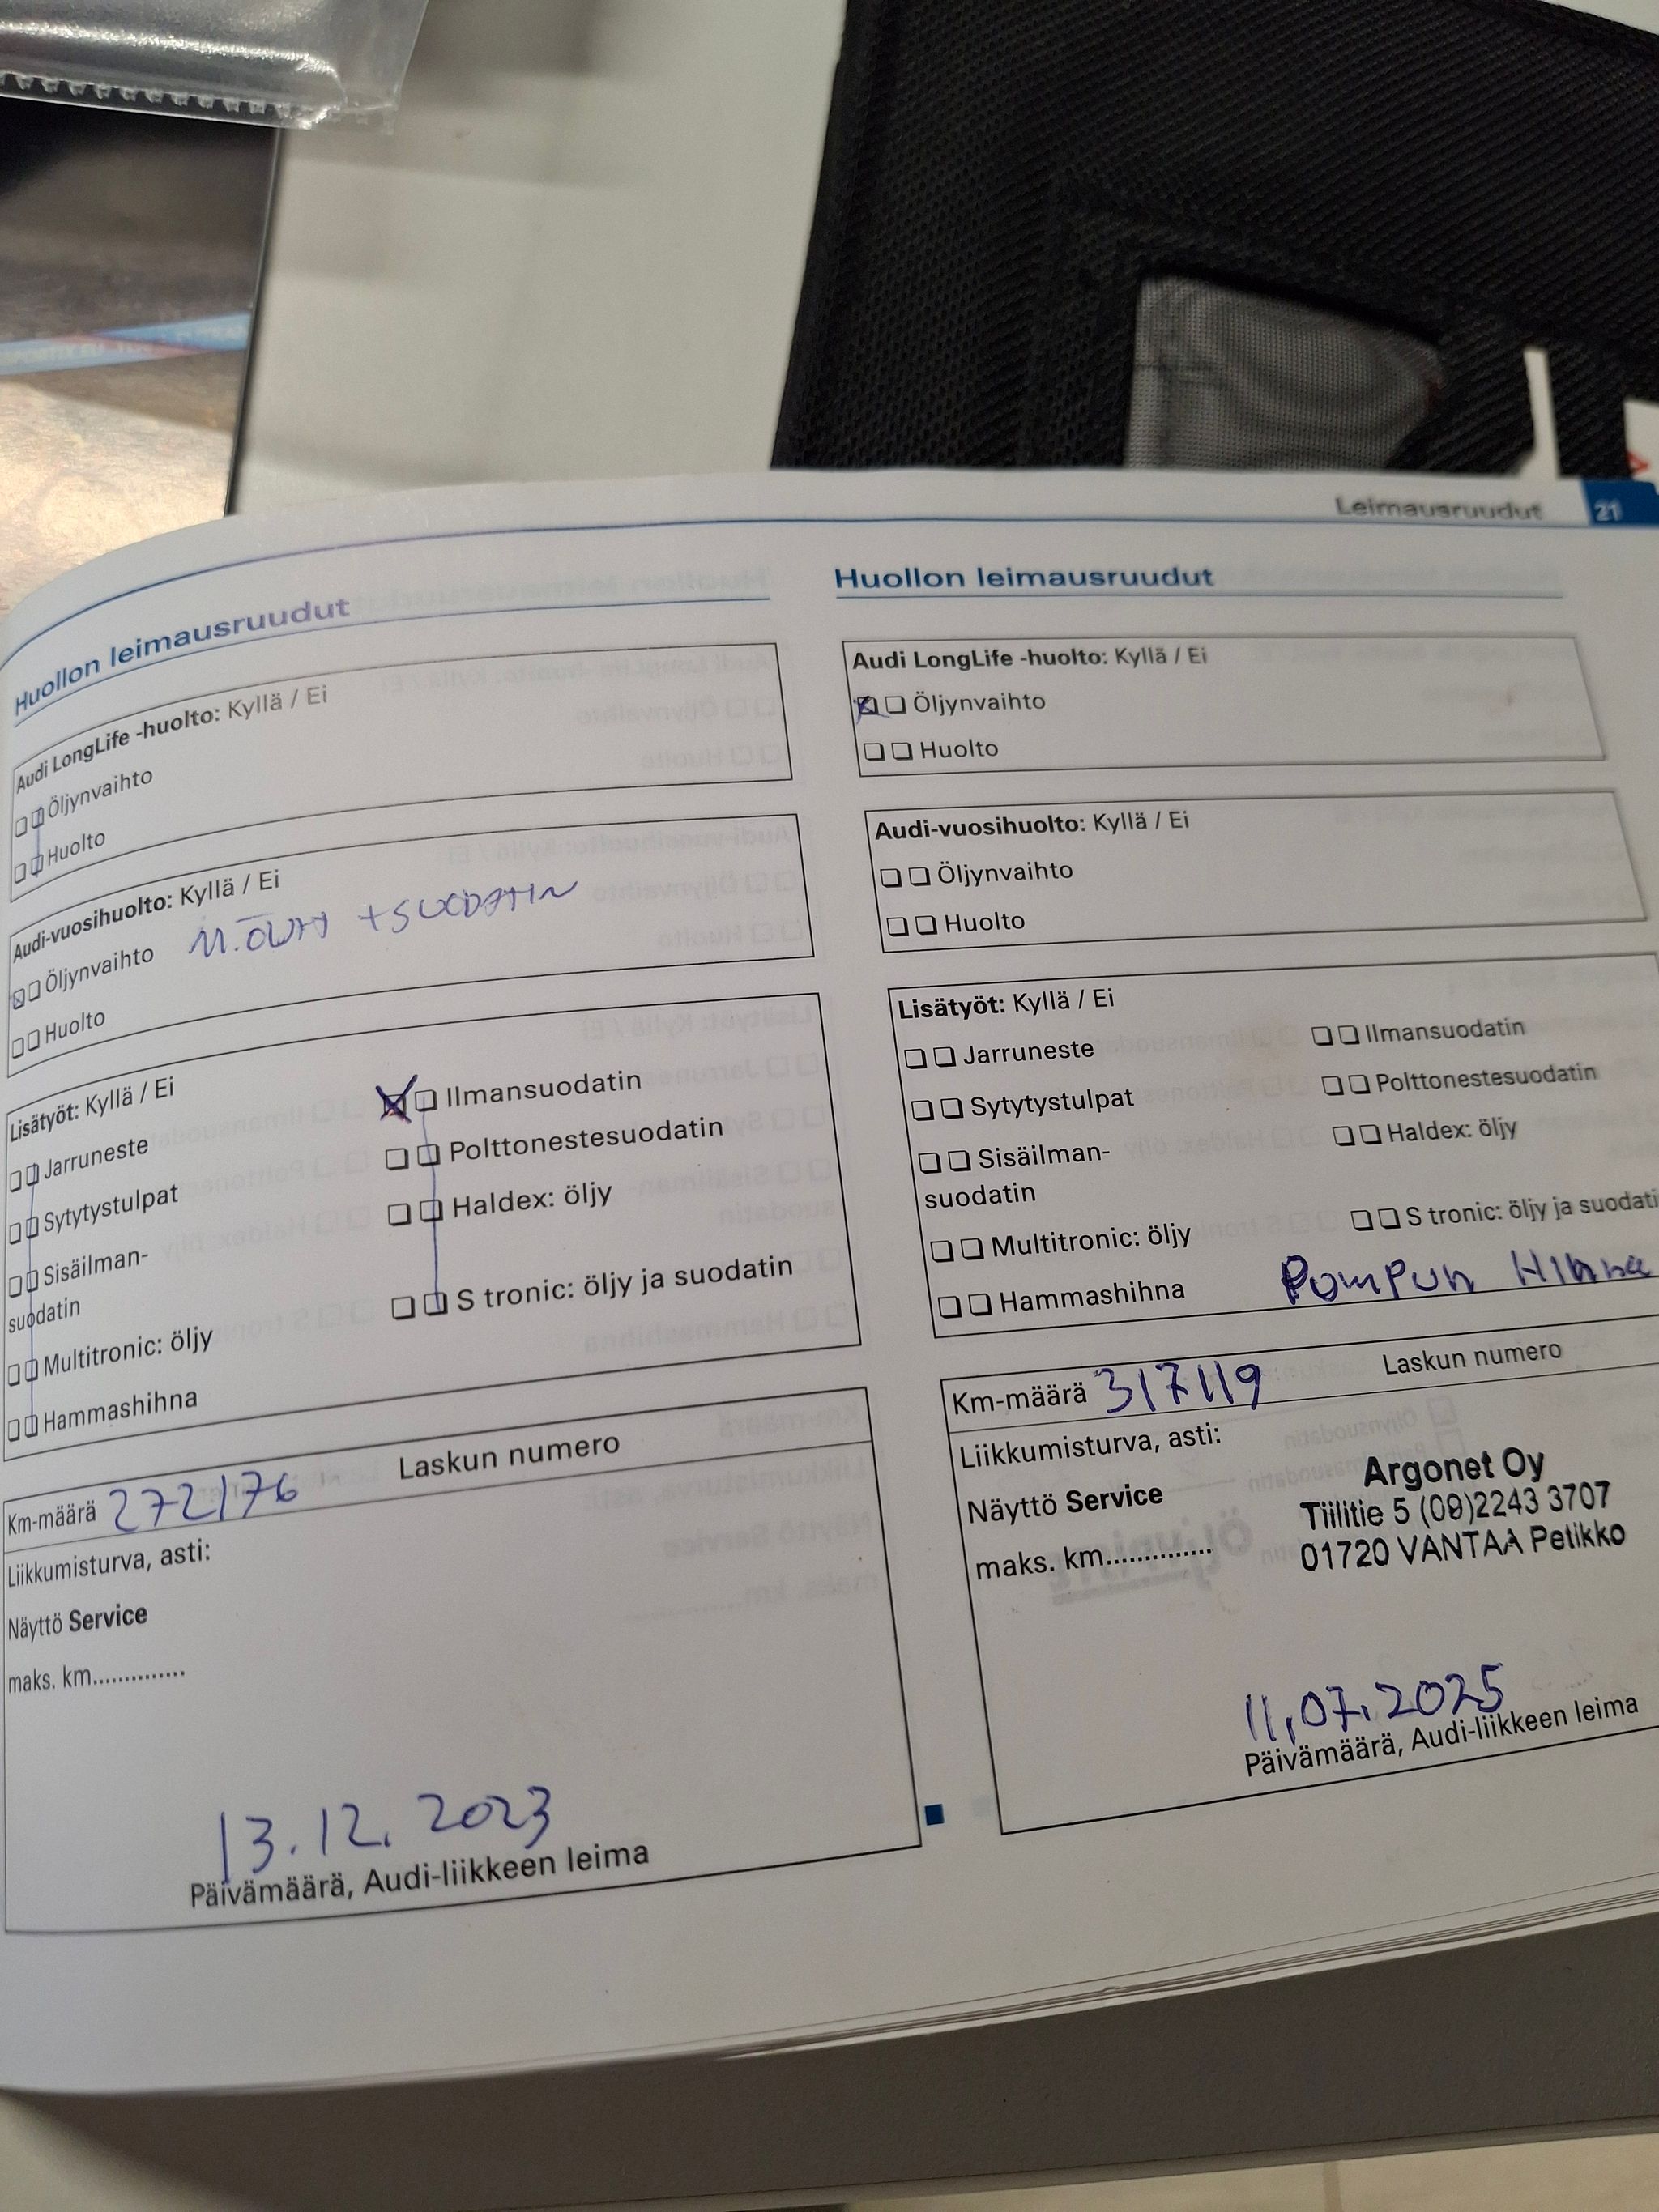 Leimausruudut 21
Huollon leimausruudut
Audi LongLife -huolto: Kyllä / Ei
Öljynvaihto
Huolto
Audi-vuosihuolto: Kyllä / Ei
Öljynvaihto M.ÖLJY + SUODATIN
Huolto
Lisätyöt: Kyllä / Ei
Jarruneste
Sytytystulpat
Sisäilman-
suodatin
Multitronic: öljy
Hammashihna
Ilmansuodatin
Polttonestesuodatin
Haldex: öljy
S tronic: öljy ja suodatin
Km-määrä 272176 Laskun numero
Liikkumisturva, asti:
Näyttö Service
maks. km..............
13.12.2023
Päivämäärä, Audi-liikkeen leima
Huollon leimausruudut
Audi LongLife -huolto: Kyllä / Ei
Öljynvaihto
Huolto
Audi-vuosihuolto: Kyllä / Ei
Öljynvaihto
Huolto
Lisätyöt: Kyllä / Ei
Jarruneste
Sytytystulpat
Sisäilman-
suodatin
Multitronic: öljy
Hammashihna
Ilmansuodatin
Polttonestesuodatin
Haldex: öljy
S tronic: öljy ja suodati
Pompun Hihna
Km-määrä 317119 Laskun numero
Liikkumisturva, asti:
Näyttö Service
maks. km..............
Argonet Oy
Tiilitie 5 (09)2243 3707
01720 VANTAA Petikko
11.07.2025
Päivämäärä, Audi-liikkeen leima